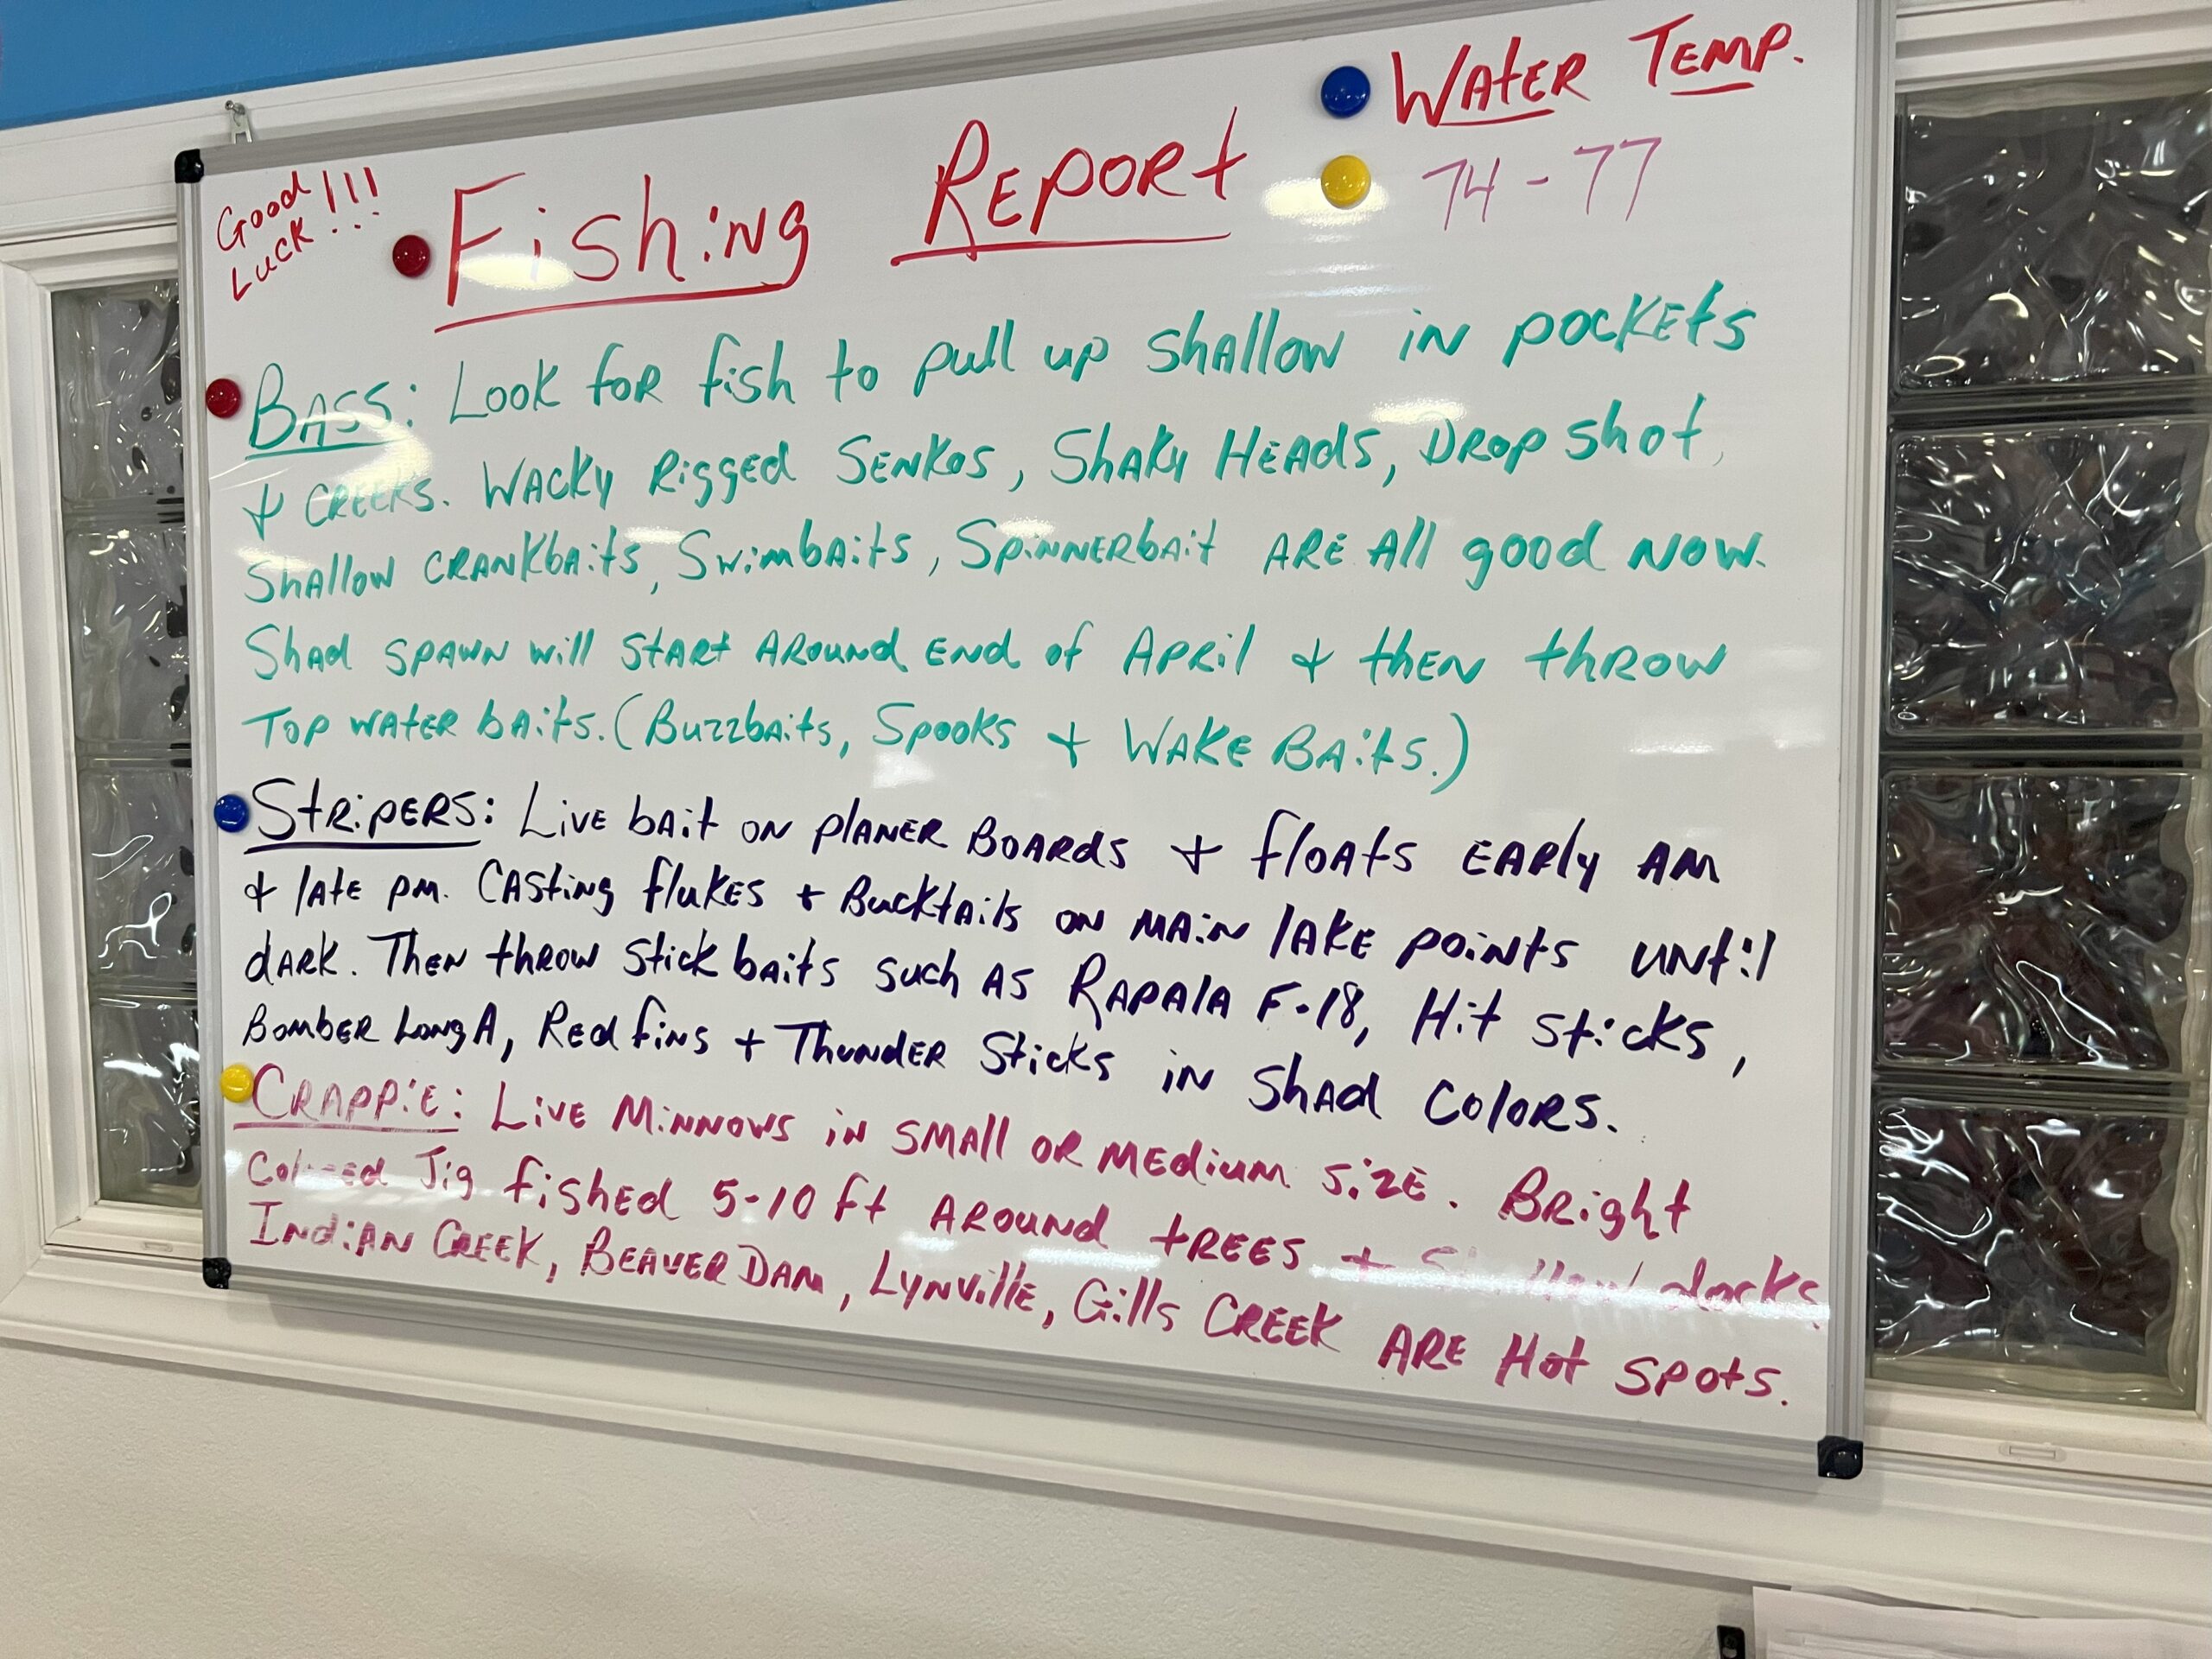 Good
Luck!!!
Fishing Report
Water Temp.
74-77
Bass: Look for fish to pull up shallow in pockets
+ creeks. Wacky Rigged Senkos, Shaky Heads, Drop shot,
Shallow crankbaits, Swimbaits, Spinnerbait are all good now.
Shad spawn will start around end of April + then throw
Top water baits. (Buzzbaits, Spooks + Wake Baits.)
Stripers: Live bait on planer boards + floats early am
+ late pm. Casting flukes + Bucktails on main lake points until
dark. Then throw stick baits such as Rapala F-18, Hit sticks,
Bomber Long A, Red fins + Thunder Sticks in Shad colors.
Crappie: Live Minnows in small or medium size. Bright
Colored Jig fished 5-10 ft around trees + Shallow docks
Indian Creek, Beaver Dam, Lynville, Gills Creek are Hot spots.